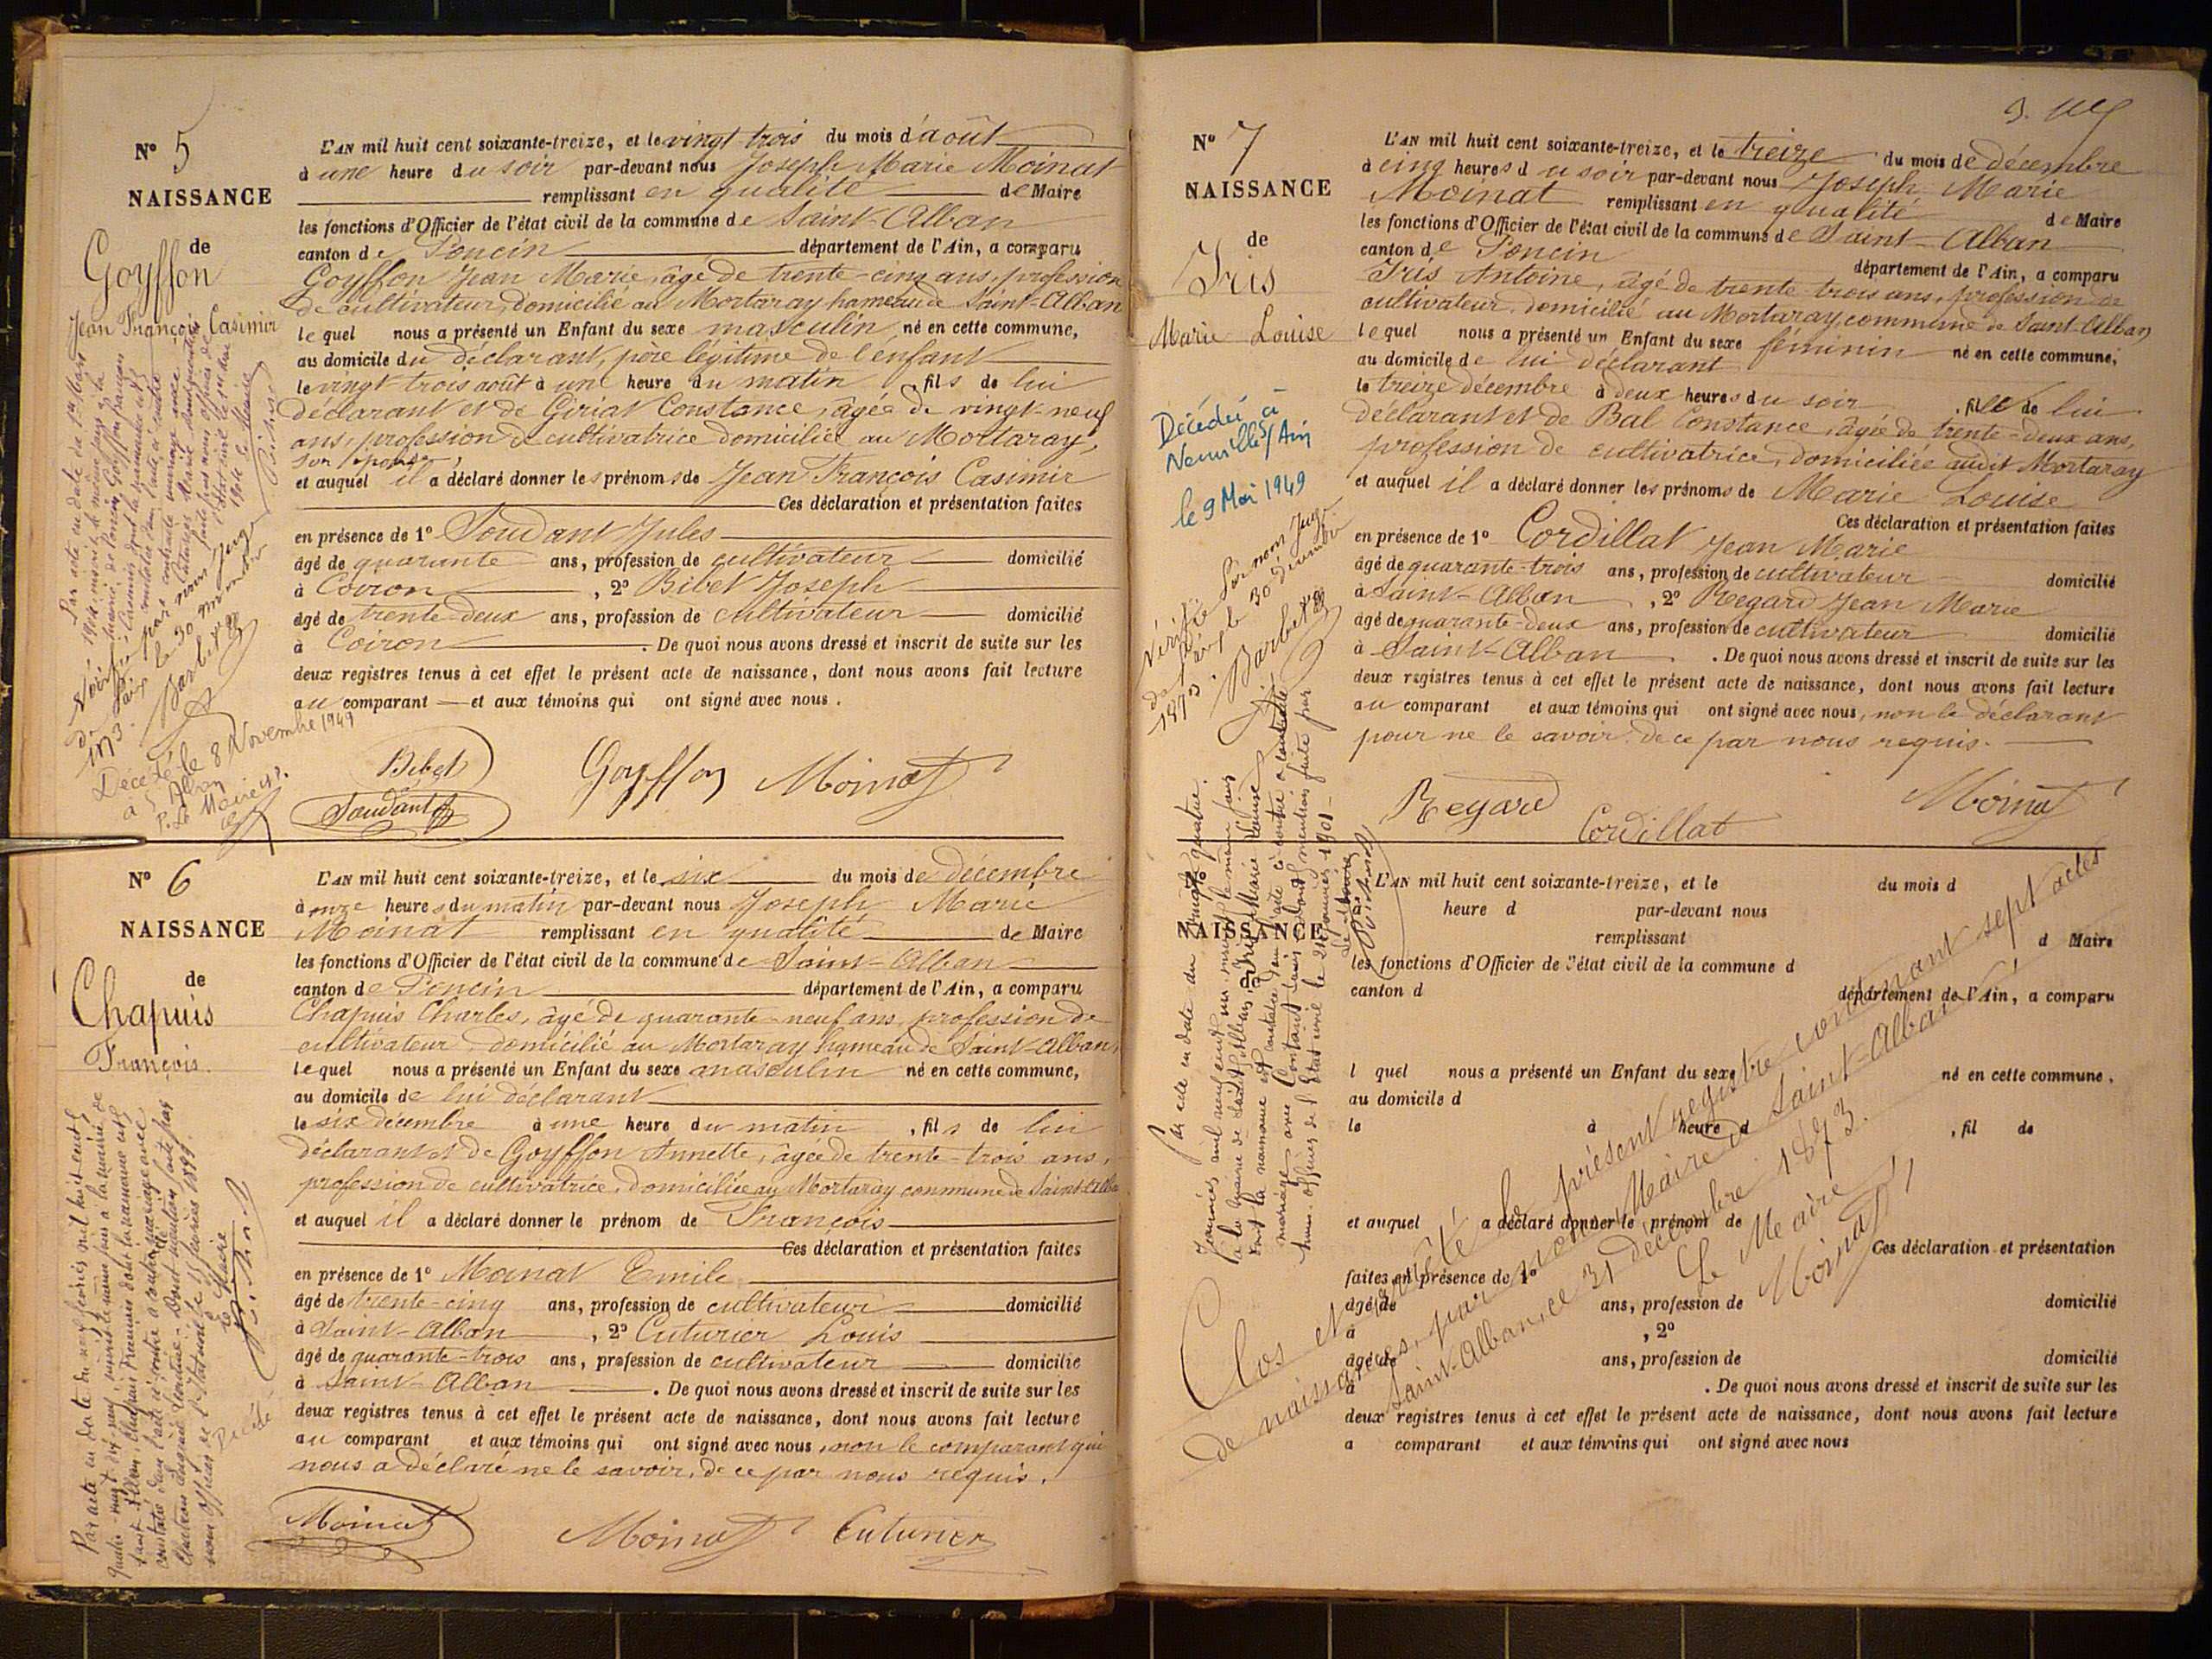 N° 5
NAISSANCE
de
Goyffon
Jean François Casimir
L'AN mil huit cent soixante-treize, et le vingt trois du mois d'août
à une heure du soir par-devant nous Joseph Marie Moinat
remplissant en qualité de Maire
les fonctions d'Officier de l'état civil de la commune de Saint-Alban
canton de Poncin département de l'Ain, a comparu
Goyffon Jean Marie, âgé de trente-cinq ans, profession
de cultivateur, domicilié au Mortaray hameau de Saint-Alban
lequel nous a présenté un Enfant du sexe masculin né en cette commune,
au domicile du déclarant, père légitime de l'enfant
le vingt trois août à une heure du matin, fils de lui
déclarant et de Giriat Constance, âgée de vingt-neuf
ans, profession de cultivatrice domiciliée au Mortaray,
son épouse,
et auquel il a déclaré donner les prénoms de Jean François Casimir
Ces déclaration et présentation faites
en présence de 1° Soudant Jules
âgé de quarante ans, profession de cultivateur domicilié
à Coiron, 2° Bibet Joseph
âgé de trente-deux ans, profession de cultivateur domicilié
à Coiron. De quoi nous avons dressé et inscrit de suite sur les
deux registres tenus à cet effet le présent acte de naissance, dont nous avons fait lecture
au comparant et aux témoins qui ont signé avec nous.
Décédé le 8 Novembre 1949
à St Alban
P. Le Maire
Bibet
Goyffon Moinat
Soudant
N° 6
NAISSANCE
de
Chapuis
François.
L'AN mil huit cent soixante-treize, et le six du mois de décembre
à onze heures du matin par-devant nous Joseph Marie
Moinat remplissant en qualité de Maire
les fonctions d'Officier de l'état civil de la commune de Saint-Alban
canton de Poncin département de l'Ain, a comparu
Chapuis Charles, âgé de quarante-neuf ans, profession de
cultivateur, domicilié au Mortaray hameau de Saint-Alban,
lequel nous a présenté un Enfant du sexe masculin né en cette commune,
au domicile de lui déclarant
le six décembre à une heure du matin, fils de lui
déclarant et de Goyffon Annette, âgée de trente-trois ans,
profession de cultivatrice, domiciliée au Mortaray commune de Saint-Alban
et auquel il a déclaré donner le prénom de François
Ces déclaration et présentation faites
en présence de 1° Moinat Emile
âgé de trente-cinq ans, profession de cultivateur domicilié
à Saint-Alban, 2° Cuturier Louis
âgé de quarante-trois ans, profession de cultivateur domicilié
à Saint-Alban. De quoi nous avons dressé et inscrit de suite sur les
deux registres tenus à cet effet le présent acte de naissance, dont nous avons fait lecture
au comparant et aux témoins qui ont signé avec nous, non le comparant qui
nous a déclaré ne le savoir, de ce par nous requis.
Moinat Moinat Cuturier
N° 7
NAISSANCE
de
Iris
Marie Louise
Décédée à
Neuville s/ Ain
le 9 Mai 1949
L'AN mil huit cent soixante-treize, et le treize du mois de décembre
à cinq heures du soir par-devant nous Joseph Marie
Moinat remplissant en qualité de Maire
les fonctions d'Officier de l'état civil de la commune de Saint-Alban
canton de Poncin département de l'Ain, a comparu
Iris Antoine, âgé de trente-trois ans, profession de
cultivateur, domicilié au Mortaray, commune de Saint-Alban
lequel nous a présenté un Enfant du sexe féminin né en cette commune,
au domicile de lui déclarant
le treize décembre à deux heures du soir, fille de lui
déclarant et de Bal Constance, âgée de trente-deux ans,
profession de cultivatrice, domiciliée audit Mortaray
et auquel il a déclaré donner les prénoms de Marie Louise
Ces déclaration et présentation faites
en présence de 1° Cordillat Jean Marie
âgé de quarante-trois ans, profession de cultivateur domicilié
à Saint-Alban, 2° Regard Jean Marie
âgé de quarante-deux ans, profession de cultivateur domicilié
à Saint-Alban. De quoi nous avons dressé et inscrit de suite sur les
deux registres tenus à cet effet le présent acte de naissance, dont nous avons fait lecture
au comparant et aux témoins qui ont signé avec nous, non le déclarant
pour ne le savoir de ce par nous requis.
Regard Cordillat Moinat
NAISSANCE
L'AN mil huit cent soixante-treize, et le du mois d
heure d par-devant nous
remplissant d Maire
les fonctions d'Officier de l'état civil de la commune d
canton d département de l'Ain, a comparu
l quel nous a présenté un Enfant du sexe né en cette commune,
au domicile d
le à heure d, fil de
et auquel a déclaré donner le prénom de
Ces déclaration et présentation
faites en présence de 1°
âgé de ans, profession de domicilié
à, 2°
âgé de ans, profession de domicilié
à. De quoi nous avons dressé et inscrit de suite sur les
deux registres tenus à cet effet le présent acte de naissance, dont nous avons fait lecture
a comparant et aux témoins qui ont signé avec nous
Clos et arrêté le présent registre contenant sept actes
de naissances, par nous, Maire de Saint-Alban
Saint-Alban, ce 31 décembre 1873.
Le Maire
Moinat